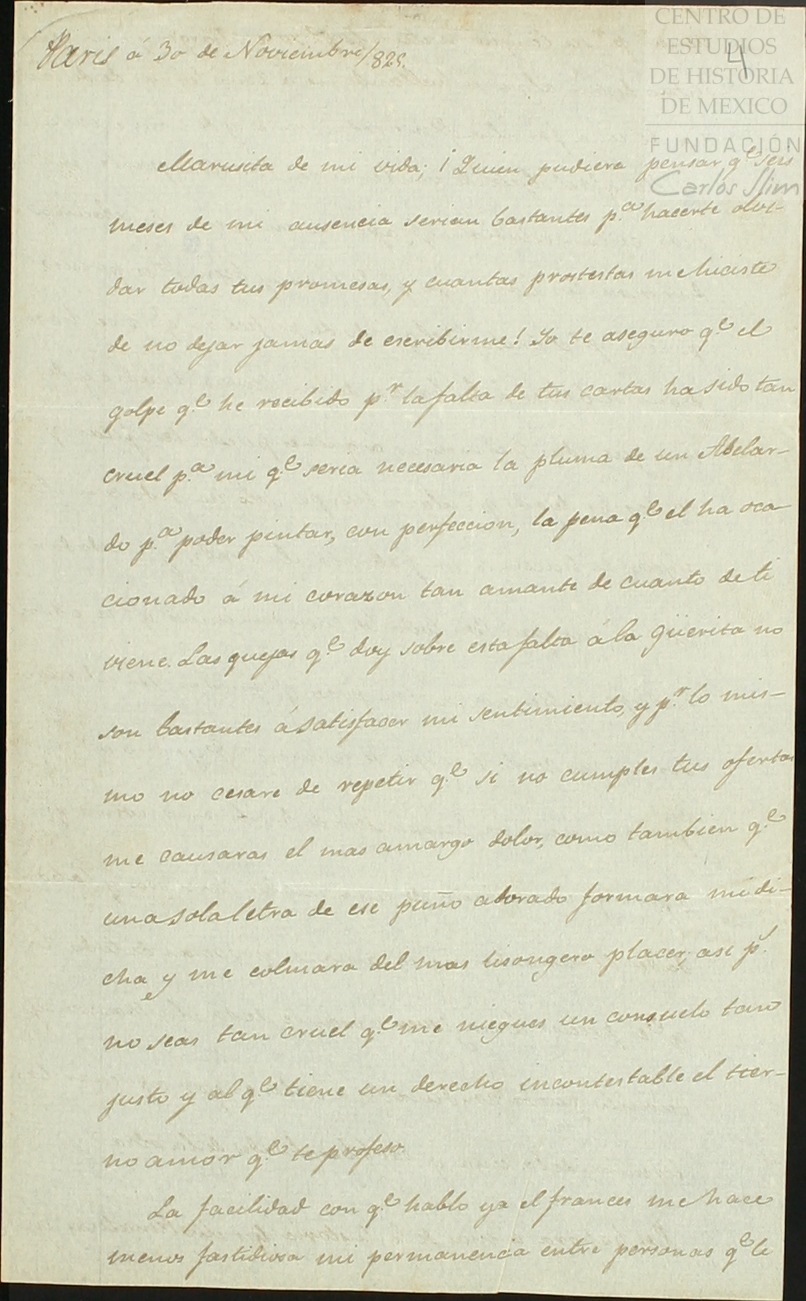 CENTRO DE
ESTUDIOS
DE HISTORIA
DE MEXICO
FUNDACIÓN
Carlos Slim
4
Paris á 30 de Noviembre/825.
Marusita de mi vida; ¡Quien pudiera pensar q.e seis
meses de mi ausencia serian bastantes p.a hacerte olvi-
dar todas tus promesas, y cuantas prostestas me hiciste
de no dejar jamas de escribirme! Yo te aseguro q.e el
golpe q.e he recibido p.r la falta de tus cartas ha sido tan
cruel p.a mi q.e seria necesaria la pluma de un Abelar-
do p.a poder pintar, con perfeccion, la pena q.e el ha oca-
cionado á mi corazon tan amante de cuanto de ti
viene. Las quejas q.e doy sobre esta falta á la Güerita no
son bastantes á satisfacer mi sentimiento, y p.r lo mis-
mo no cesare de repetir q.e si no cumples tus ofertas
me causaras el mas amargo dolor, como tambien q.e
una sola letra de ese puño adorado formara mi di-
cha y me colmara del mas lisongero placer; asi p.s
no seas tan cruel q.e me niegues un consuelo tan
justo y al q.e tiene un derecho incontestable el tier-
no amor q.e te profeso
La facilidad con q.e hablo ya el frances me hace
menos fastidiosa mi permanencia entre personas q.e le